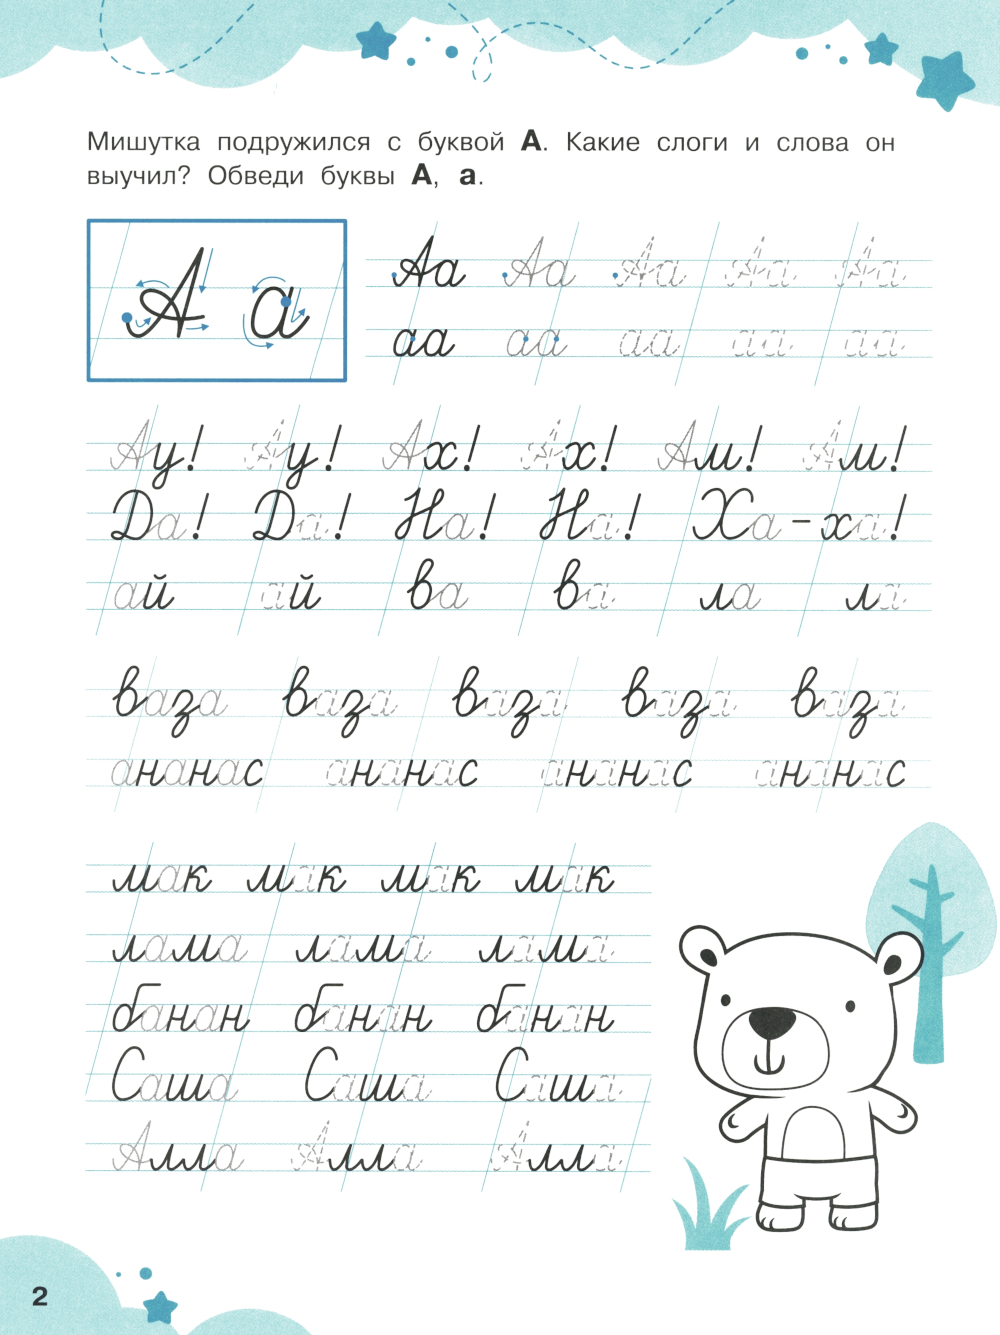 Мишутка подружился с буквой А. Какие слоги и слова он
выучил? Обведи буквы А, а.
А а
Аа Аа Аа Аа Аа
аа аа аа аа аа
Ау! Ау! Ах! Ах! Ам! Ам!
Да! Да! На! На! Ха-ха!
ай ай ва ва ла ла
ваза ваза ваза ваза ваза
ананас ананас ананас ананас
мак мак мак мак
лама лама лама
банан банан банан
Саша Саша Саша
Алла Алла Алла
2